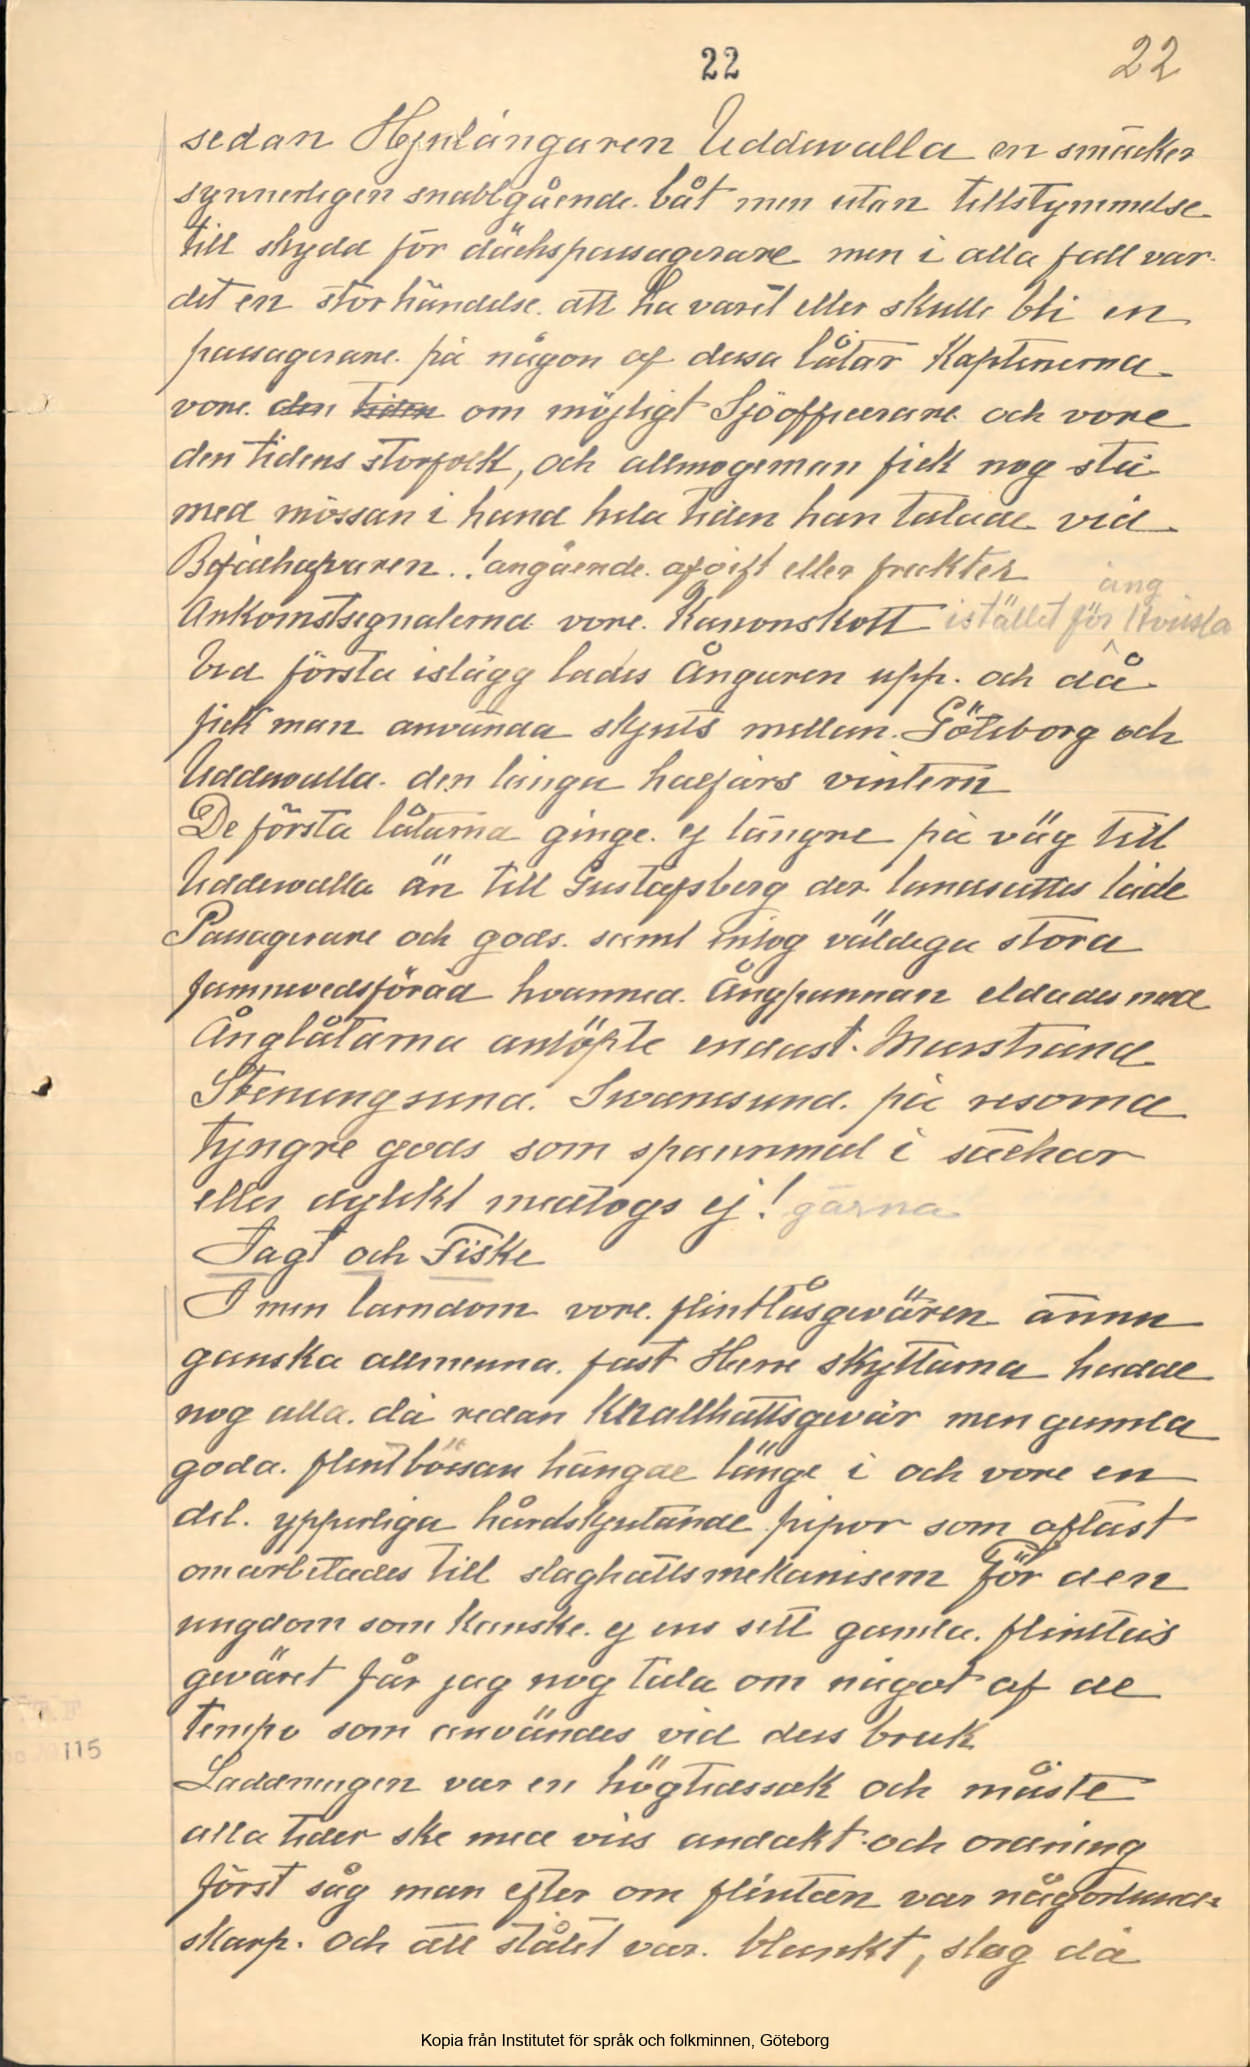 22 22
sedan Hjulångaren Uddewalla en smäcker
synnerligen snabbgående. båt men utan tillstymmelse
till skydd för däckspassagerare men i alla fall var
det en stor händelse. att ha varit eller skulle bli en
passagerare. på någon af dessa båtar Kaptenerna
vore. den tiden om möjligt Sjöofficerare och vore
den tidens storfolk, och allmogeman fick nog stå
med mössan i hand hela tiden han talade vid
Befälhafvaren..! angående. afgift eller frakter
Ankomstsignalerna vore. Kanonskott istället för ång Hvissla
Vid första islägg lades Ångaren upp. och då
fick man använda skjuts mellan. Göteborg och
Uddewalla. den långa halfårs vintern
De första båtarna ginge. ej längre på väg till
Uddewalla än till Gustafsberg der landsattes både
Passagerare och gods. samt intog väldiga stora
famnvedsförråd hvarmed. Ångpannan eldades med
Ångbåtarna anlöpte endast. Marstrand
Stenungsund. Svanesund. på resorna
tyngre gods som spannmål i säckar
eller dylikt medtogs ej! gärna
Jagt och Fiske
I min barndom vore. flintlåsgevären ännu
ganska allmenna. fast Herre skyttarna hadde
nog alla. då redan Knallhattsgevär men gamla
goda. flintbössan hängde länge i och vore en
del. ypperliga hårdskjutande pipor som oftast
omarbetades till slaghattsmekanisem För den
ungdom som kanske. ej ens sett gamla. flintlås
geväret får jag nog tala om något af de
tempo som användes vid dess bruk
115
Laddningen var en högtidssak och måste
alla tider ske med viss andakt och ordning
först såg man efter om flintan var någorlunda
skarp. och att stålet var. blankt, slog då
Kopia från Institutet för språk och folkminnen, Göteborg